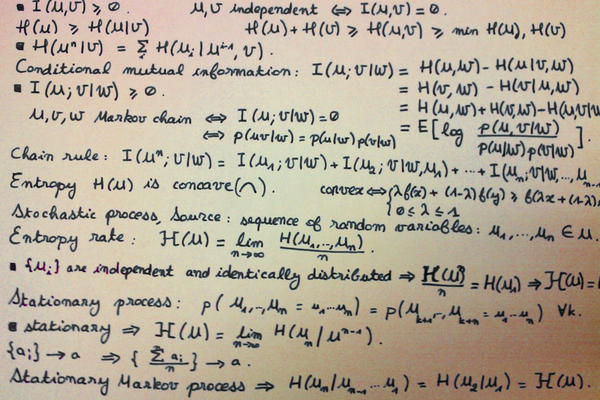 ▪ I(U,V) ⩾ 0. U,V independent ⟺ I(U,V) = 0.
H(U) ⩾ H(U|V) H(U)+H(V) ⩾ H(U,V) ⩾ min H(U), H(V)
▪ H(Uⁿ|V) = Σᵢ H(Uᵢ|Uⁱ⁻¹, V).
Conditional mutual information: I(U;V|W) = H(U,W) - H(U|V,W)
▪ I(U;V|W) ⩾ 0. = H(V,W) - H(V|U,W)
= H(U,W)+H(V,W)-H(U,V,W
U,V,W Markov chain ⟺ I(U;V|W)=0 = E[log p(U,V|W) / p(U|W)p(V|W)].
⟺ p(uv|w) = p(u|w)p(v|w)
Chain rule: I(Uⁿ;V|W) = I(U₁;V|W)+I(U₂;V|W,U₁)+...+I(Uₙ;V|W,...,Uₙ₋
Entropy H(U) is concave(⌒). convex ⟺ {λf(x)+(1-λ)f(y) ⩾ f(λx+(1-λ)
0 ⩽ λ ⩽ 1
Stochastic process, Source: sequence of random variables: U₁,...,Uₙ ∈ U.
Entropy rate: H(U) = lim n→∞ H(U₁,..,Uₙ)/n.
▪ {Uᵢ} are independent and identically distributed ⇒ H(U)/n = H(U₁) ⇒ H(U)=
Stationary process: p(U₁,..,Uₙ = u₁...uₙ) = p(Uₖ₊₁,..,Uₖ₊ₙ = u₁...uₙ) ∀k.
▪ stationary ⇒ H(U) = lim n→∞ H(Uₙ|Uⁿ⁻¹).
{aᵢ} → a ⇒ {Σ aᵢ/n} → a.
Stationary Markov process ⇒ H(Uₙ|Uₙ₋₁...U₁) = H(U₂|U₁) = H(U).